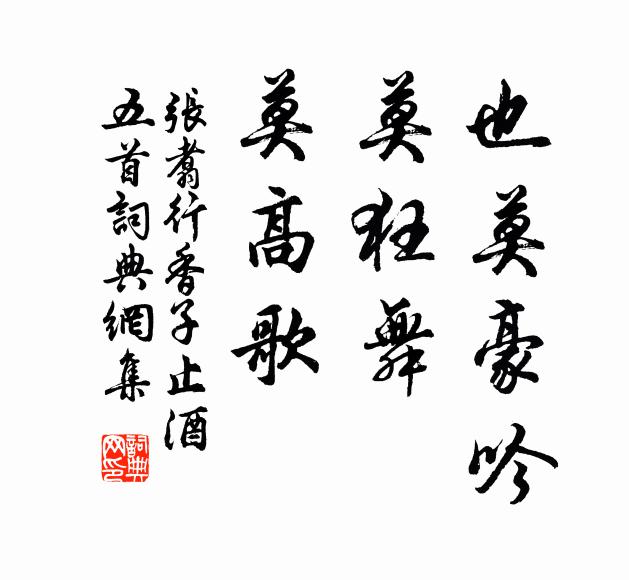 也莫豪吟
莫狂舞
莫高歌
張翥行香子止酒
五首詞典網集
詞典網印